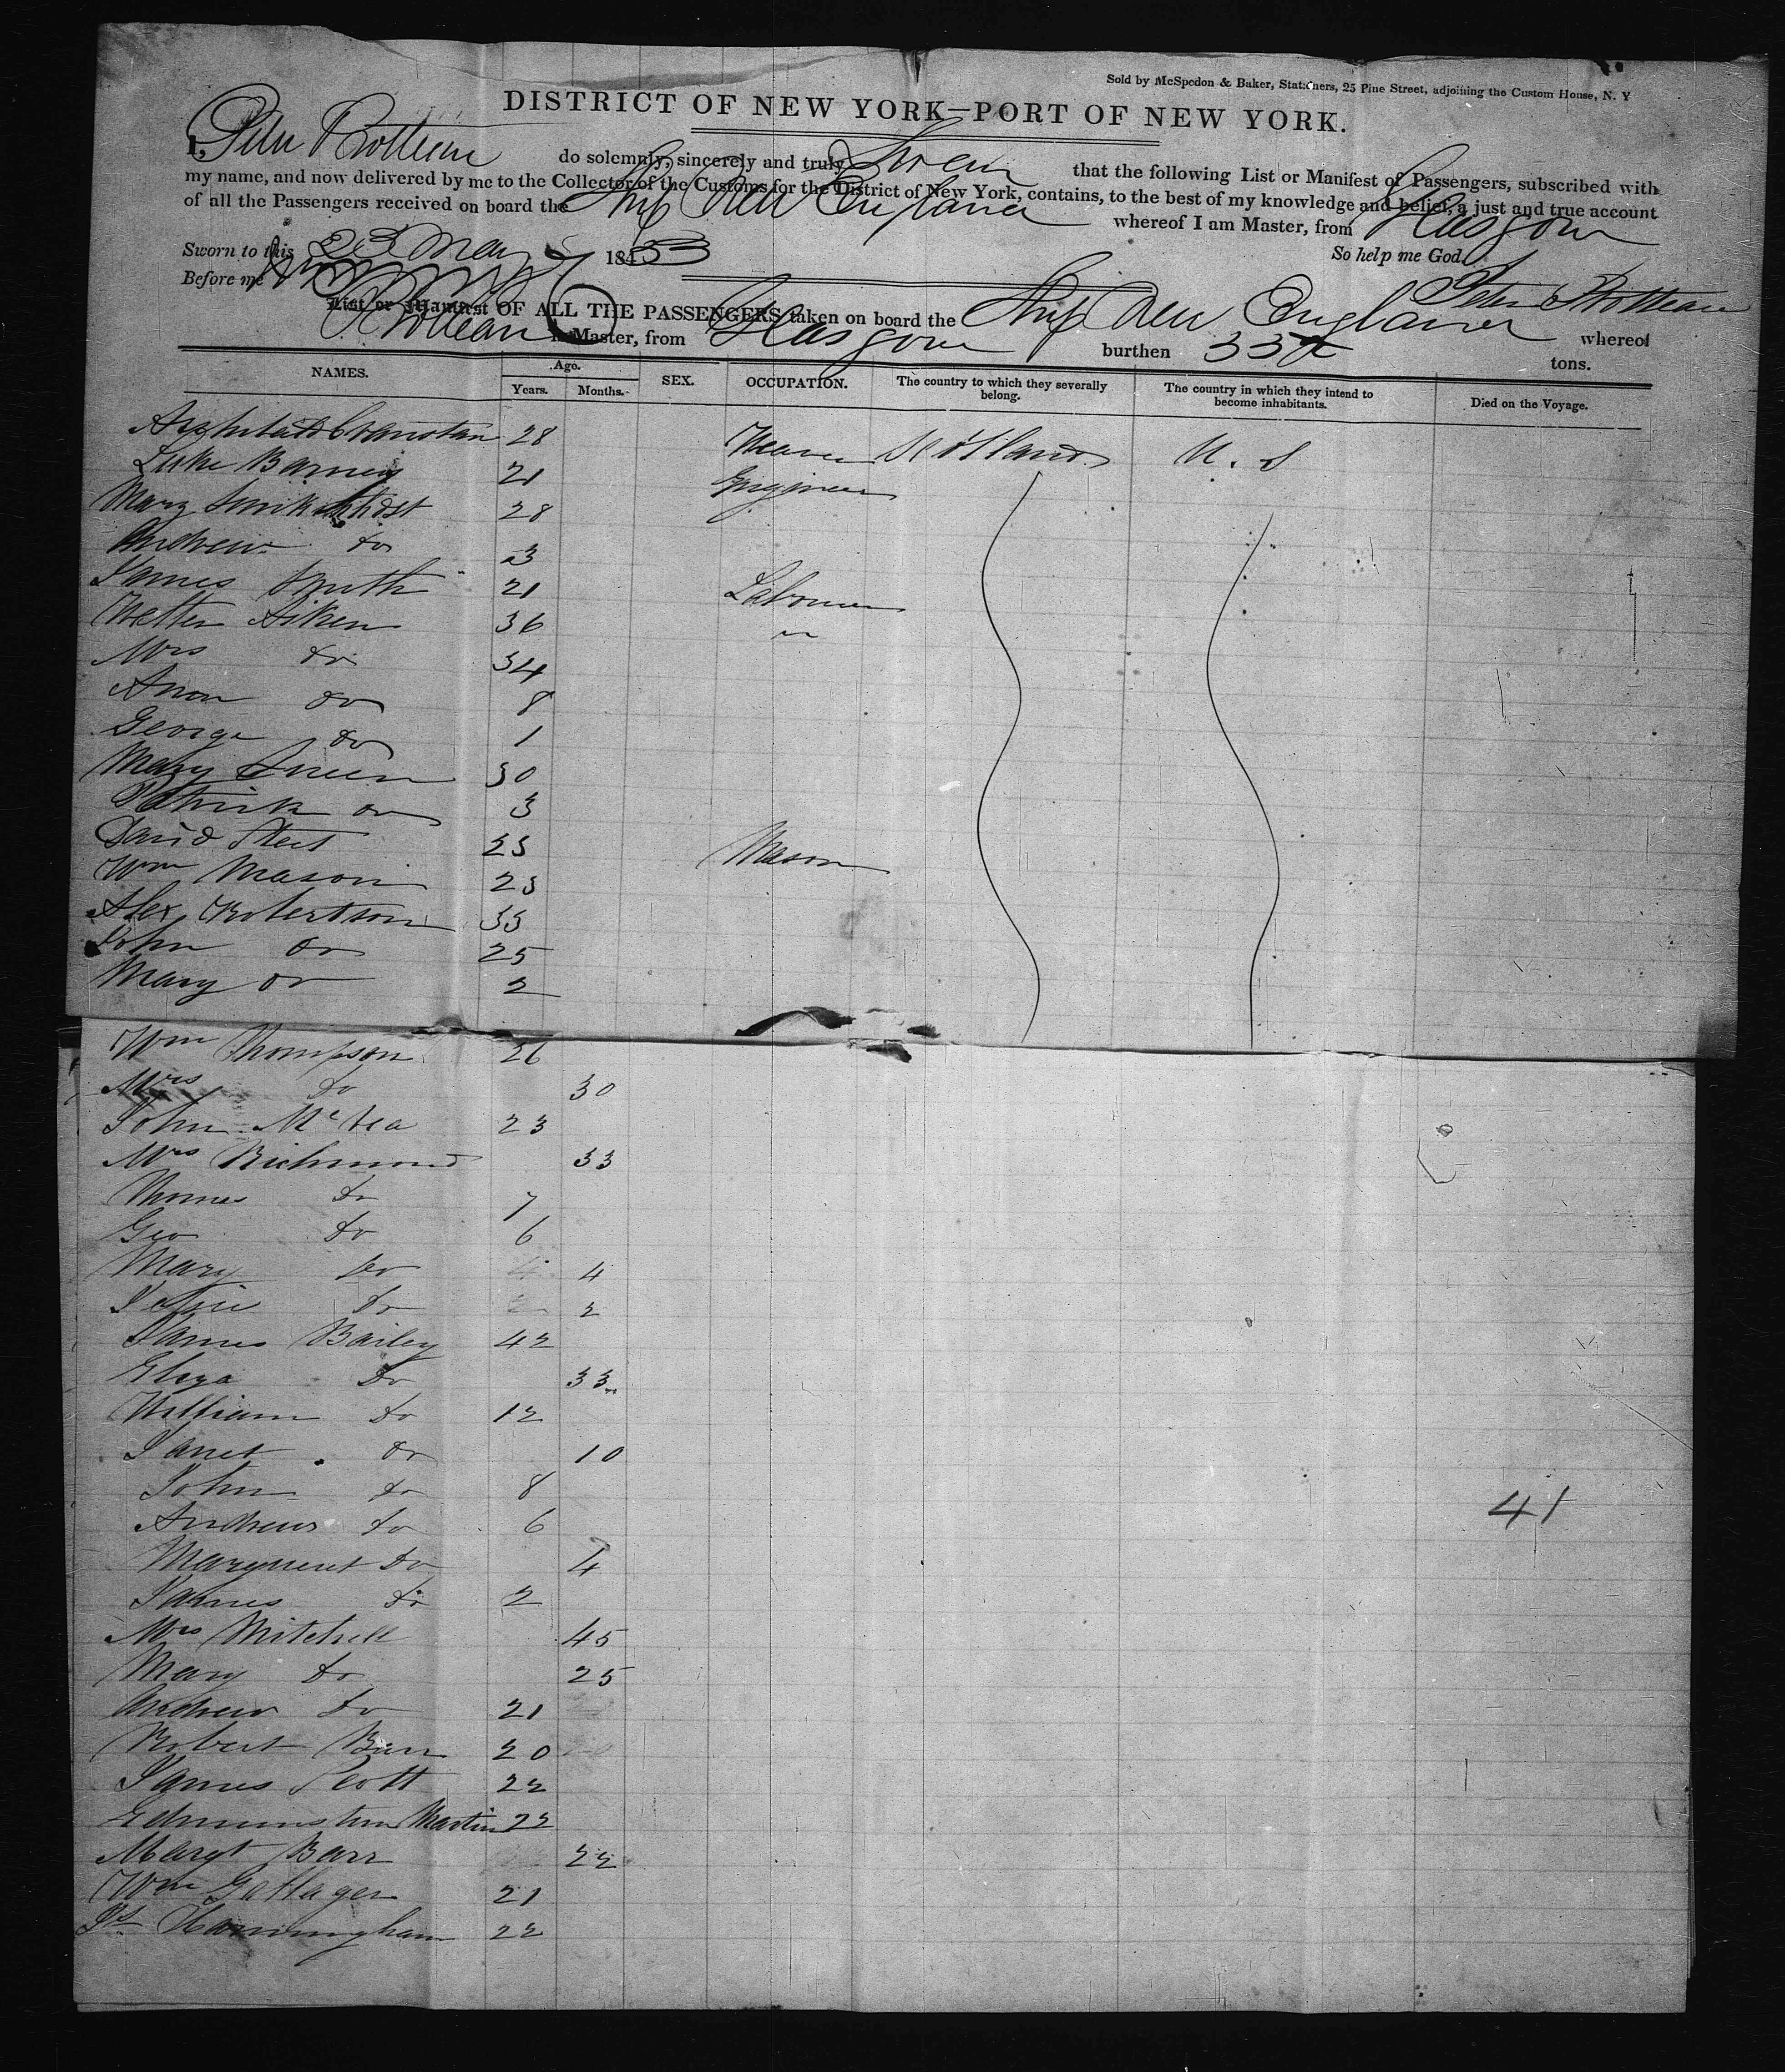 Sold by McSpedon & Baker, Stationers, 25 Pine Street, adjoining the Custom House, N. Y
DISTRICT OF NEW YORK—PORT OF NEW YORK.
I, Peter do solemnly, sincerely and truly Swear that the following List or Manifest of Passengers, subscribed with
my name, and now delivered by me to the Collector of the Customs for the District of New York, contains, to the best of my knowledge and belief, a just and true account
of all the Passengers received on board the Ship New England whereof I am Master, from Glasgow
Sworn to this 23 May 1853 So help me God.
Before me Peter
List or Manifest OF ALL THE PASSENGERS taken on board the Ship New England whereof
is Master, from Glasgow burthen tons.
NAMES. Age. Years. Months. SEX. OCCUPATION. The country to which they severally belong. The country in which they intend to become inhabitants. Died on the Voyage.
Archibald Cranstan 28 Weaver Scotland U. S
Luke Barnes 21 Engineer
Mary 28
Andrew do 3
James Smith 21 Labourer
Aiken 36 "
Mrs do 34
do 8
George do 1
Mary Green 30
Patrick do 3
David Steet 23
Wm Mason 23 Mason
Alex Robertson 33
John do 25
Mary do 2
Wm Thompson 26
Mrs do 30
John 23
Mrs Richmond 33
Thomas do 7
Geo do 6
Mary do 4
do 2
James Bailey 42
Eliza do 33
William do 12
Janet do 10
John do 8
Andrew do 6
Margaret do 4
James do 2
Mrs Mitchell 45
Mary do 25
Andrew do 21
Robert Barr 20
James Scott 22
Martin 22
Margt Barr 22
Wm Gallager 21
22
41